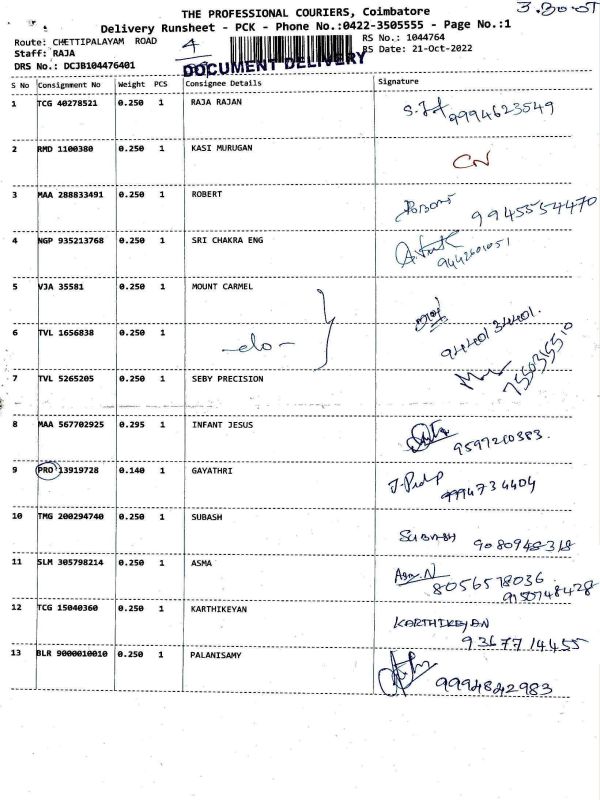 THE PROFESSIONAL COURIERS, Coimbatore
Delivery Runsheet - PCK - Phone No.:0422-3505555 - Page No.:1
Route: CHETTIPALAYAM ROAD
4
RS No.: 1044764
Staff: RAJA
RS Date: 21-Oct-2022
DRS No.: DCJB104476401
DOCUMENT DELIVERY
S No Consignment No Weight PCS Consignee Details Signature
1 TCG 40278521 0.250 1 RAJA RAJAN 9994623549
2 RMD 1100380 0.250 1 KASI MURUGAN CN
3 MAA 288833491 0.250 1 ROBERT 9945554470
4 NGP 935213768 0.250 1 SRI CHAKRA ENG 9442601051
5 VJA 35581 0.250 1 MOUNT CARMEL
6 TVL 1656838 0.250 1 -do- 9440134401.
7 TVL 5265205 0.250 1 SEBY PRECISION 7550315510
8 MAA 567702925 0.295 1 INFANT JESUS 9597210383.
9 PRO 13919728 0.140 1 GAYATHRI 9994734404
10 TMG 200294740 0.250 1 SUBASH SUBASH 9080948318
11 SLM 305798214 0.250 1 ASMA Asma.N 8056578036
9150748428
12 TCG 15040360 0.250 1 KARTHIKEYAN KARTHIKEYAN
9367714455
13 BLR 9000010010 0.250 1 PALANISAMY 9994842983